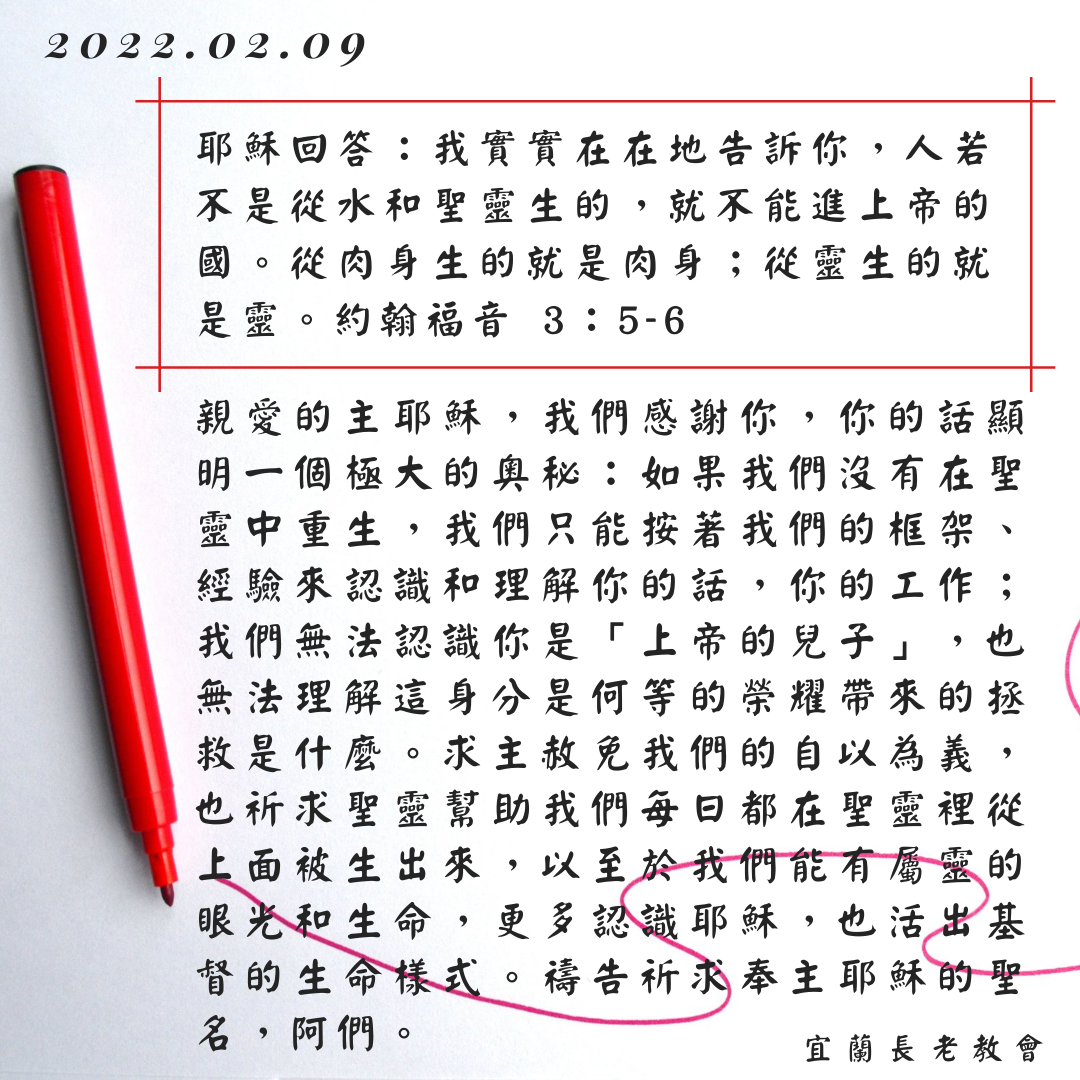 2022.02.09
耶穌回答：我實實在在地告訴你，人若
不是從水和聖靈生的，就不能進上帝的
國。從肉身生的就是肉身；從靈生的就
是靈。約翰福音 3：5-6
親愛的主耶穌，我們感謝你，你的話顯
明一個極大的奧秘：如果我們沒有在聖
靈中重生，我們只能按著我們的框架、
經驗來認識和理解你的話，你的工作；
我們無法認識你是「上帝的兒子」，也
無法理解這身分是何等的榮耀帶來的拯
救是什麼。求主赦免我們的自以為義，
也祈求聖靈幫助我們每日都在聖靈裡從
上面被生出來，以至於我們能有屬靈的
眼光和生命，更多認識耶穌，也活出基
督的生命樣式。禱告祈求奉主耶穌的聖
名，阿們。
宜蘭長老教會